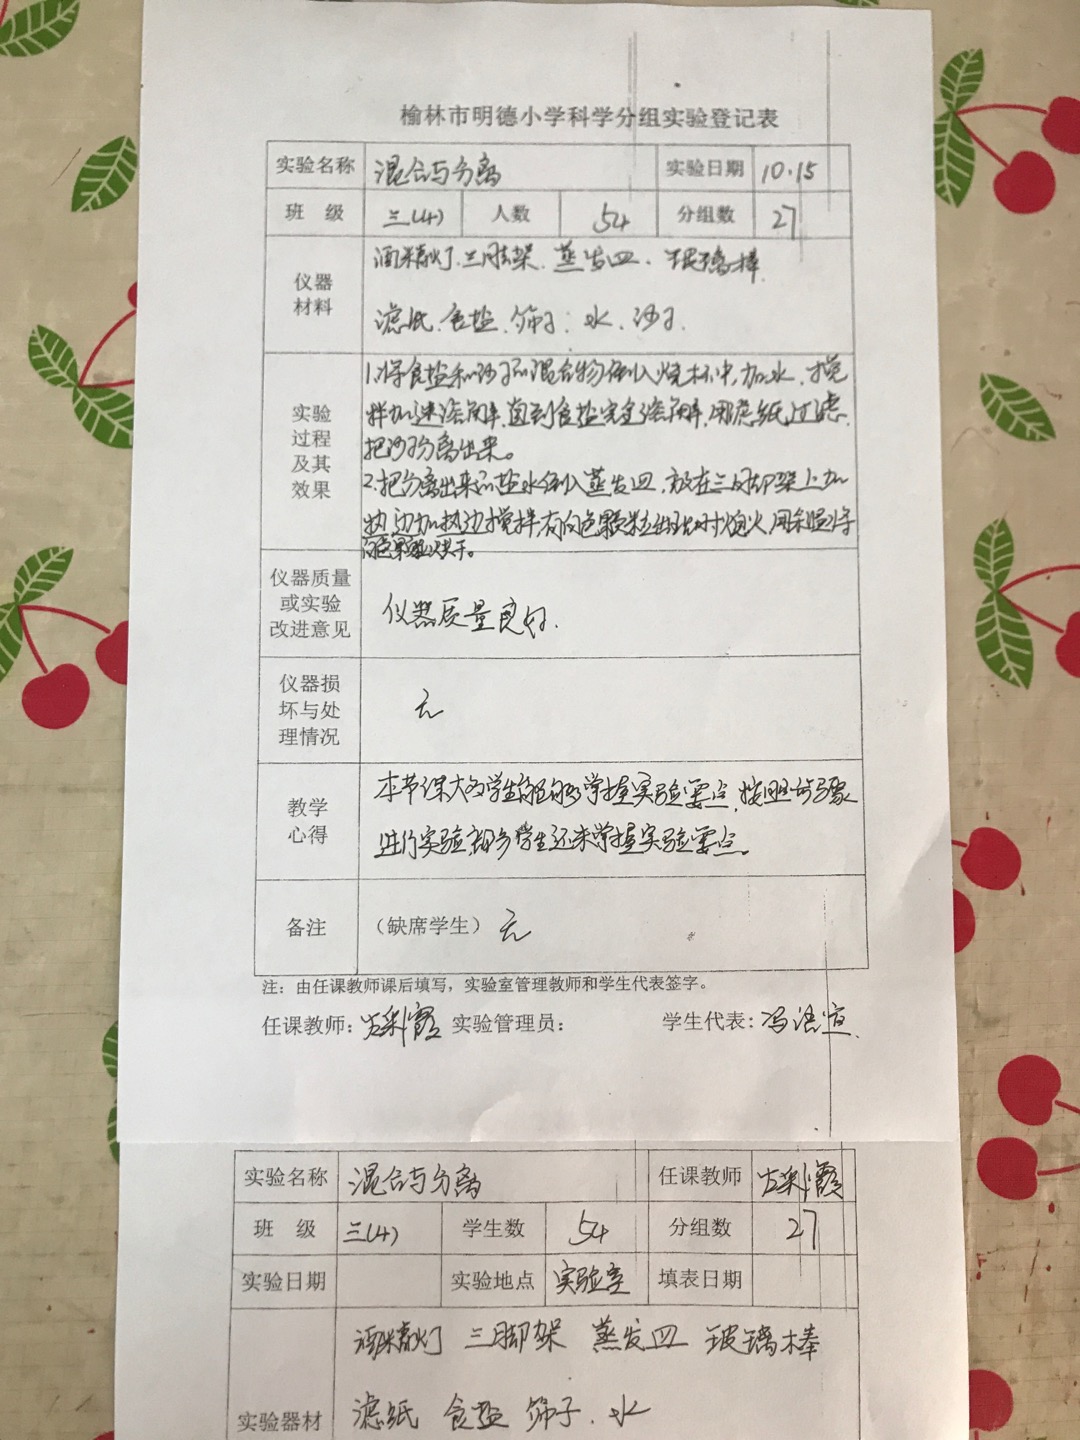 榆林市明德小学科学分组实验登记表
实验名称 混合与分离 实验日期 10.15
班 级 三(4) 人数 54 分组数 27
仪器
材料
酒精灯、三脚架、蒸发皿、玻璃棒
滤纸、食盐、筛子、水、沙子
实验
过程
及其
效果
1.将食盐和沙子的混合物倒入烧杯中,加水,搅
拌加速溶解,直到食盐完全溶解,用滤纸过滤,
把沙子分离出来。
2.把分离出来的盐水倒入蒸发皿,放在三脚架上加
热,边加热边搅拌,有白色颗粒出现时熄火,用余温将
白色颗粒烘干。
仪器质量
或实验
改进意见
仪器质量良好.
仪器损
坏与处
理情况
无
教学
心得
本节课大多学生能够掌握实验要点,按照步骤
进行实验,部分学生还未掌握实验要点。
备注 (缺席学生) 无
注:由任课教师课后填写,实验室管理教师和学生代表签字。
任课教师: 彩霞 实验管理员: 学生代表: 冯
实验名称 混合与分离 任课教师 彩霞
班 级 三(4) 学生数 54 分组数 27
实验日期 实验地点 实验室 填表日期
实验器材
酒精灯 三脚架 蒸发皿 玻璃棒
滤纸 食盐 筛子、水